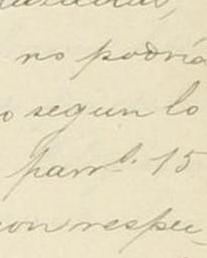 no podría
o segun lo
parr.l. 15
con respec-